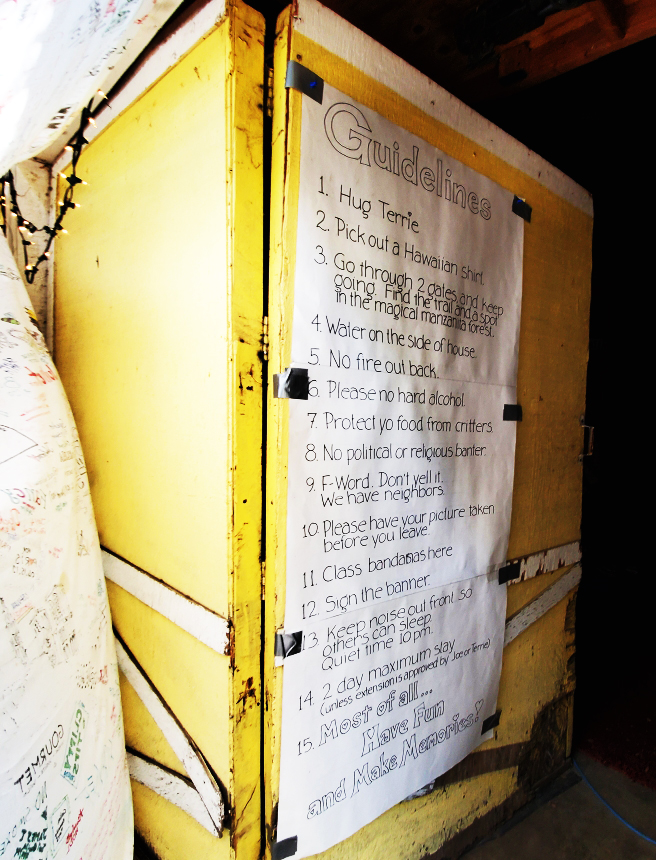 Guidelines
1. Hug Terrie
2. Pick out a Hawaiian shirt.
3. Go through 2 gates and keep
going. Find the trail and a spot
in the magical manzanita forest.
4. Water on the side of house.
5. No fire out back.
6. Please no hard alcohol.
7. Protect yo food from critters.
8. No political or religious banter.
9. F-Word. Don't yell it.
We have neighbors.
10. Please have your picture taken
before you leave.
11. Class bandanas here
12. Sign the banner.
13. Keep noise out front so
others can sleep.
Quiet time 10pm.
14. 2 day maximum stay
(unless extension is approved by Joe or Terrie)
15. Most of all...
Have Fun
and Make Memories!
GOURMET